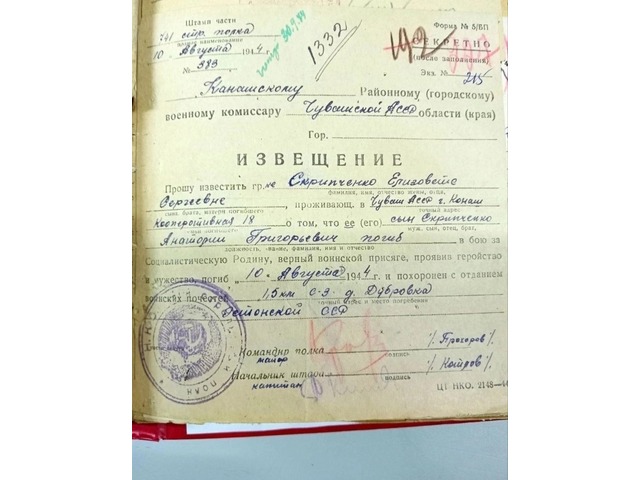 Штамп части
Форма № 5/БП
741 стр. полка
СЕКРЕТНО
10 Августа 1944 г.
(после заполнения)
№ 383
Экз. № 215
1332
192
Канашскому Районному (городскому)
военному комиссару Чувашской АССР области (края)
Гор.
ИЗВЕЩЕНИЕ
Прошу известить гр.ке Скрипченко Елизавете
фамилия, имя, отчество жены, отца,
Сергевне, проживающ. в Чуваш АССР г. Канаш
сына, брата, матери погибшего точный адрес
Кооперативная 18 о том, что ее (его) сын Скрипченко
муж, сын, отец, брат,
Анатолий Григорьевич погиб в бою за
должность, звание, фамилия, имя и отчество
Социалистическую Родину, верный воинской присяге, проявив геройство
и мужество, погиб 10 Августа 1944 г. и похоронен с отданием
воинских почестей 1,5 км С-З д. Дубровка
точный адрес и место погребения
Эстонской ССР
Командир полка /Прохоров/
майор подпись
Начальник штаба
капитан подпись
ЦТ НКО. 2148—44